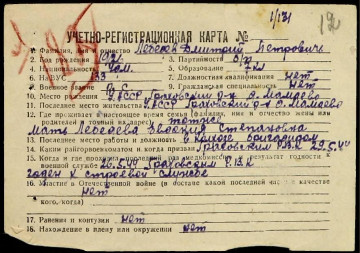 1/131
12
УЧЕТНО-РЕГИСТРАЦИОННАЯ КАРТА №
1. Фамилия, имя, отчество Лебедев Дмитрий Петрович
2. Год рождения 1921 3. Партийность б/п
4. Национальность 5. Образование 7 кл
6. №ВУС 133 7. Должностная квалификация нет
8. Военное 9. Гражданская специальность нет
10. Место рождения УАССР Граховский р-н с. Мамаево
11. Последнее место жительства УАССР Граховский р-н с. Мамаево
12. Где проживают в настоящее время семья, имя и отчество жены или
родителей и точный их адрес
Мать Лебедева Евдокия Степановна
13. Последнее место работы и должность в колхозе бригадиром
14. Каким райгорвоенкоматом и когда призван Граховским РВК 29.5.44
15. Когда и где проходил последний раз медкомиссию, результат годности к
военной службе 26.5.44 Граховским РВК
годен к строевой службе
16. Участие в Отечественной войне (в составе какой последней части в качестве
кого, когда) нет
17. Ранения и контузии нет
18. Нахождение в плену или окружении нет